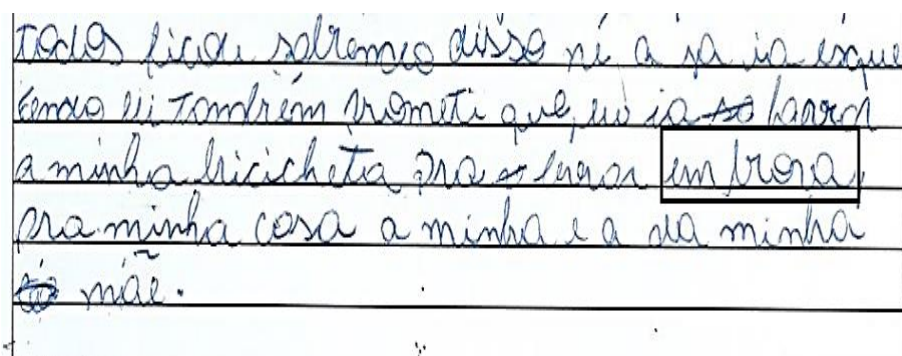 todos ficou sabremdo disso né a ja ia esque
cendo eu também prometi que, eu ia so lavra
a minha bicicheta pra so levar em brora,
pra minha casa a minha e a da minha
mãe.